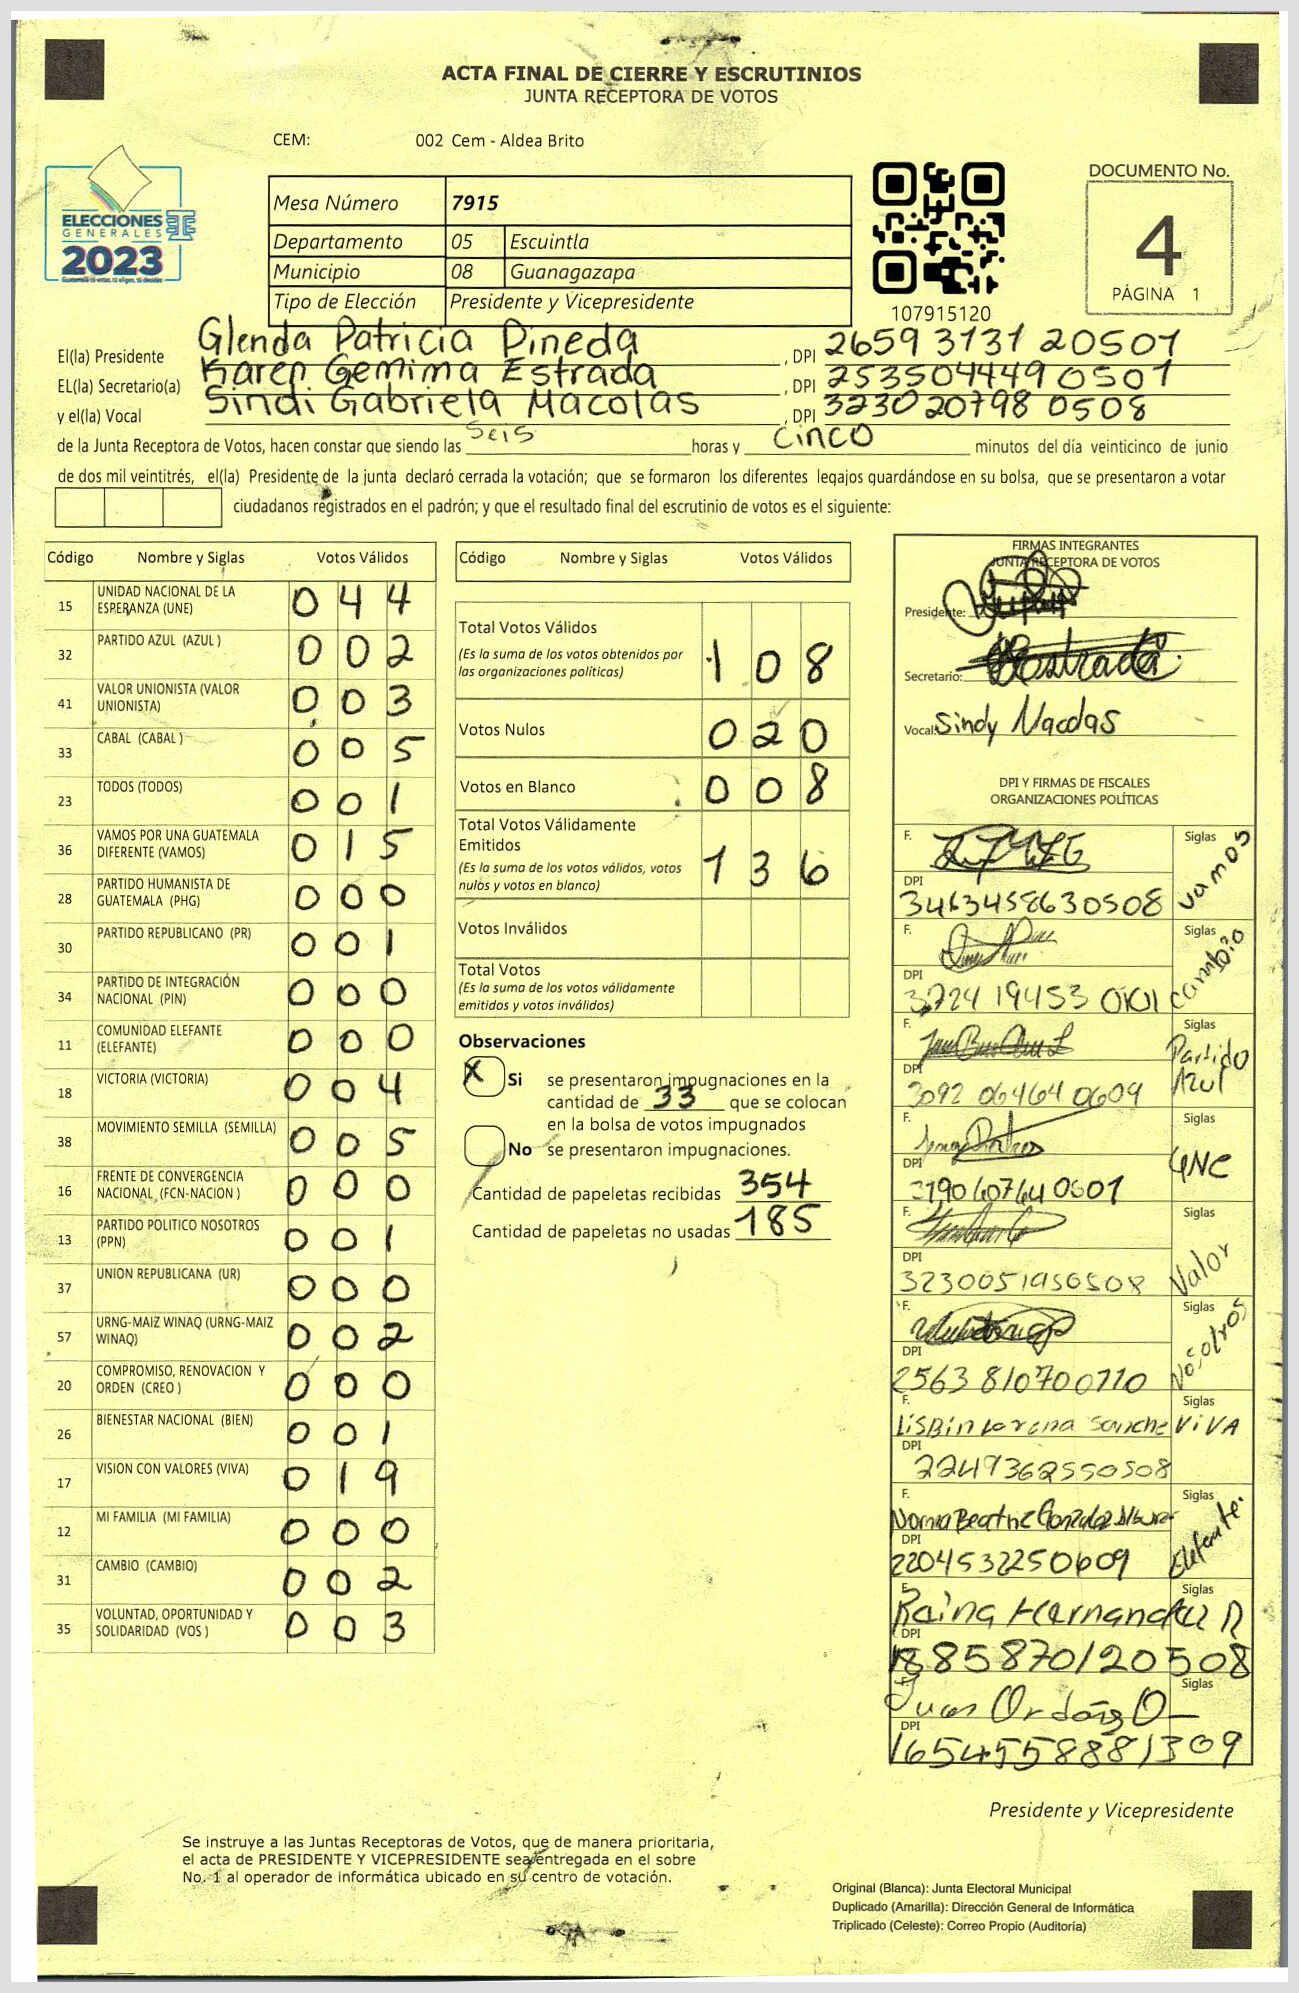 ACTA FINAL DE CIERRE Y ESCRUTINIOS
JUNTA RECEPTORA DE VOTOS
CEM: 002 Cem - Aldea Brito
ELECCIONES
GENERALES
2023
Mesa Número 7915
Departamento 05 Escuintla
Municipio 08 Guanagazapa
Tipo de Elección Presidente y Vicepresidente
107915120
DOCUMENTO No.
4
PÁGINA 1
El(la) Presidente Glenda Patricia Pineda , DPI 2659 3131 20501
EL(la) Secretario(a) Karen Gemima Estrada , DPI 2535044490501
y el(la) Vocal Sindi Gabriela Macolas , DPI 3230 20798 0508
de la Junta Receptora de Votos, hacen constar que siendo las seis horas y cinco minutos del día veinticinco de junio
de dos mil veintitrés, el(la) Presidente de la junta declaró cerrada la votación; que se formaron los diferentes legajos guardándose en su bolsa, que se presentaron a votar
ciudadanos registrados en el padrón; y que el resultado final del escrutinio de votos es el siguiente:
Código Nombre y Siglas Votos Válidos
15 UNIDAD NACIONAL DE LA ESPERANZA (UNE) 0 4 4
32 PARTIDO AZUL (AZUL ) 0 0 2
41 VALOR UNIONISTA (VALOR UNIONISTA) 0 0 3
33 CABAL (CABAL ) 0 0 5
23 TODOS (TODOS) 0 0 1
36 VAMOS POR UNA GUATEMALA DIFERENTE (VAMOS) 0 1 5
28 PARTIDO HUMANISTA DE GUATEMALA (PHG) 0 0 0
30 PARTIDO REPUBLICANO (PR) 0 0 1
34 PARTIDO DE INTEGRACIÓN NACIONAL (PIN) 0 0 0
11 COMUNIDAD ELEFANTE (ELEFANTE) 0 0 0
18 VICTORIA (VICTORIA) 0 0 4
38 MOVIMIENTO SEMILLA (SEMILLA) 0 0 5
16 FRENTE DE CONVERGENCIA NACIONAL (FCN-NACION ) 0 0 0
13 PARTIDO POLITICO NOSOTROS (PPN) 0 0 1
37 UNION REPUBLICANA (UR) 0 0 0
57 URNG-MAIZ WINAQ (URNG-MAIZ WINAQ) 0 0 2
20 COMPROMISO, RENOVACION Y ORDEN (CREO ) 0 0 0
26 BIENESTAR NACIONAL (BIEN) 0 0 1
17 VISION CON VALORES (VIVA) 0 1 9
12 MI FAMILIA (MI FAMILIA) 0 0 0
31 CAMBIO (CAMBIO) 0 0 2
35 VOLUNTAD, OPORTUNIDAD Y SOLIDARIDAD (VOS ) 0 0 3
Código Nombre y Siglas Votos Válidos
Total Votos Válidos 1 0 8
(Es la suma de los votos obtenidos por
las organizaciones políticas)
Votos Nulos 0 2 0
Votos en Blanco 0 0 8
Total Votos Válidamente
Emitidos 1 3 6
(Es la suma de los votos válidos, votos
nulos y votos en blanco)
Votos Inválidos
Total Votos
(Es la suma de los votos válidamente
emitidos y votos inválidos)
Observaciones
X Si se presentaron impugnaciones en la
cantidad de 33 que se colocan
en la bolsa de votos impugnados
No se presentaron impugnaciones.
Cantidad de papeletas recibidas 354
Cantidad de papeletas no usadas 185
FIRMAS INTEGRANTES
JUNTA RECEPTORA DE VOTOS
Presidente:
Secretario: Estrada
Vocal: Sindy Macolas
DPI Y FIRMAS DE FISCALES
ORGANIZACIONES POLÍTICAS
F. Siglas vamos
DPI 3463458630508
F. Siglas cambio
DPI 3724 19453 0101
F. Siglas Partido Azul
DPI 3092 06464 0609
F. Siglas UNE
DPI
F. Siglas Valor
DPI 3230051950508
F. Siglas Nosotros
DPI 2563 810700710
F. Siglas VIVA
DPI 2249362550508
F. Norma Beatriz Siglas Elefante.
DPI 2204532250609
F. Raina Hernandez R Siglas
DPI 1885870120508
F. Siglas
DPI 1654455888 1309
Presidente y Vicepresidente
Se instruye a las Juntas Receptoras de Votos, que de manera prioritaria,
el acta de PRESIDENTE Y VICEPRESIDENTE sea entregada en el sobre
No. 1 al operador de informática ubicado en su centro de votación.
Original (Blanca): Junta Electoral Municipal
Duplicado (Amarilla): Dirección General de Informática
Triplicado (Celeste): Correo Propio (Auditoría)